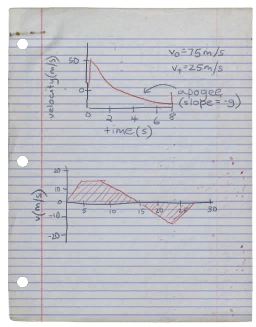 v₀=75m/s
50
vₜ=25m/s
velocity(m/s)
0
apogee
(slope=-g)
0 2 4 6 8
time(s)
20
10
v(m/s)
0
5 10 15 20 30
-10
-20